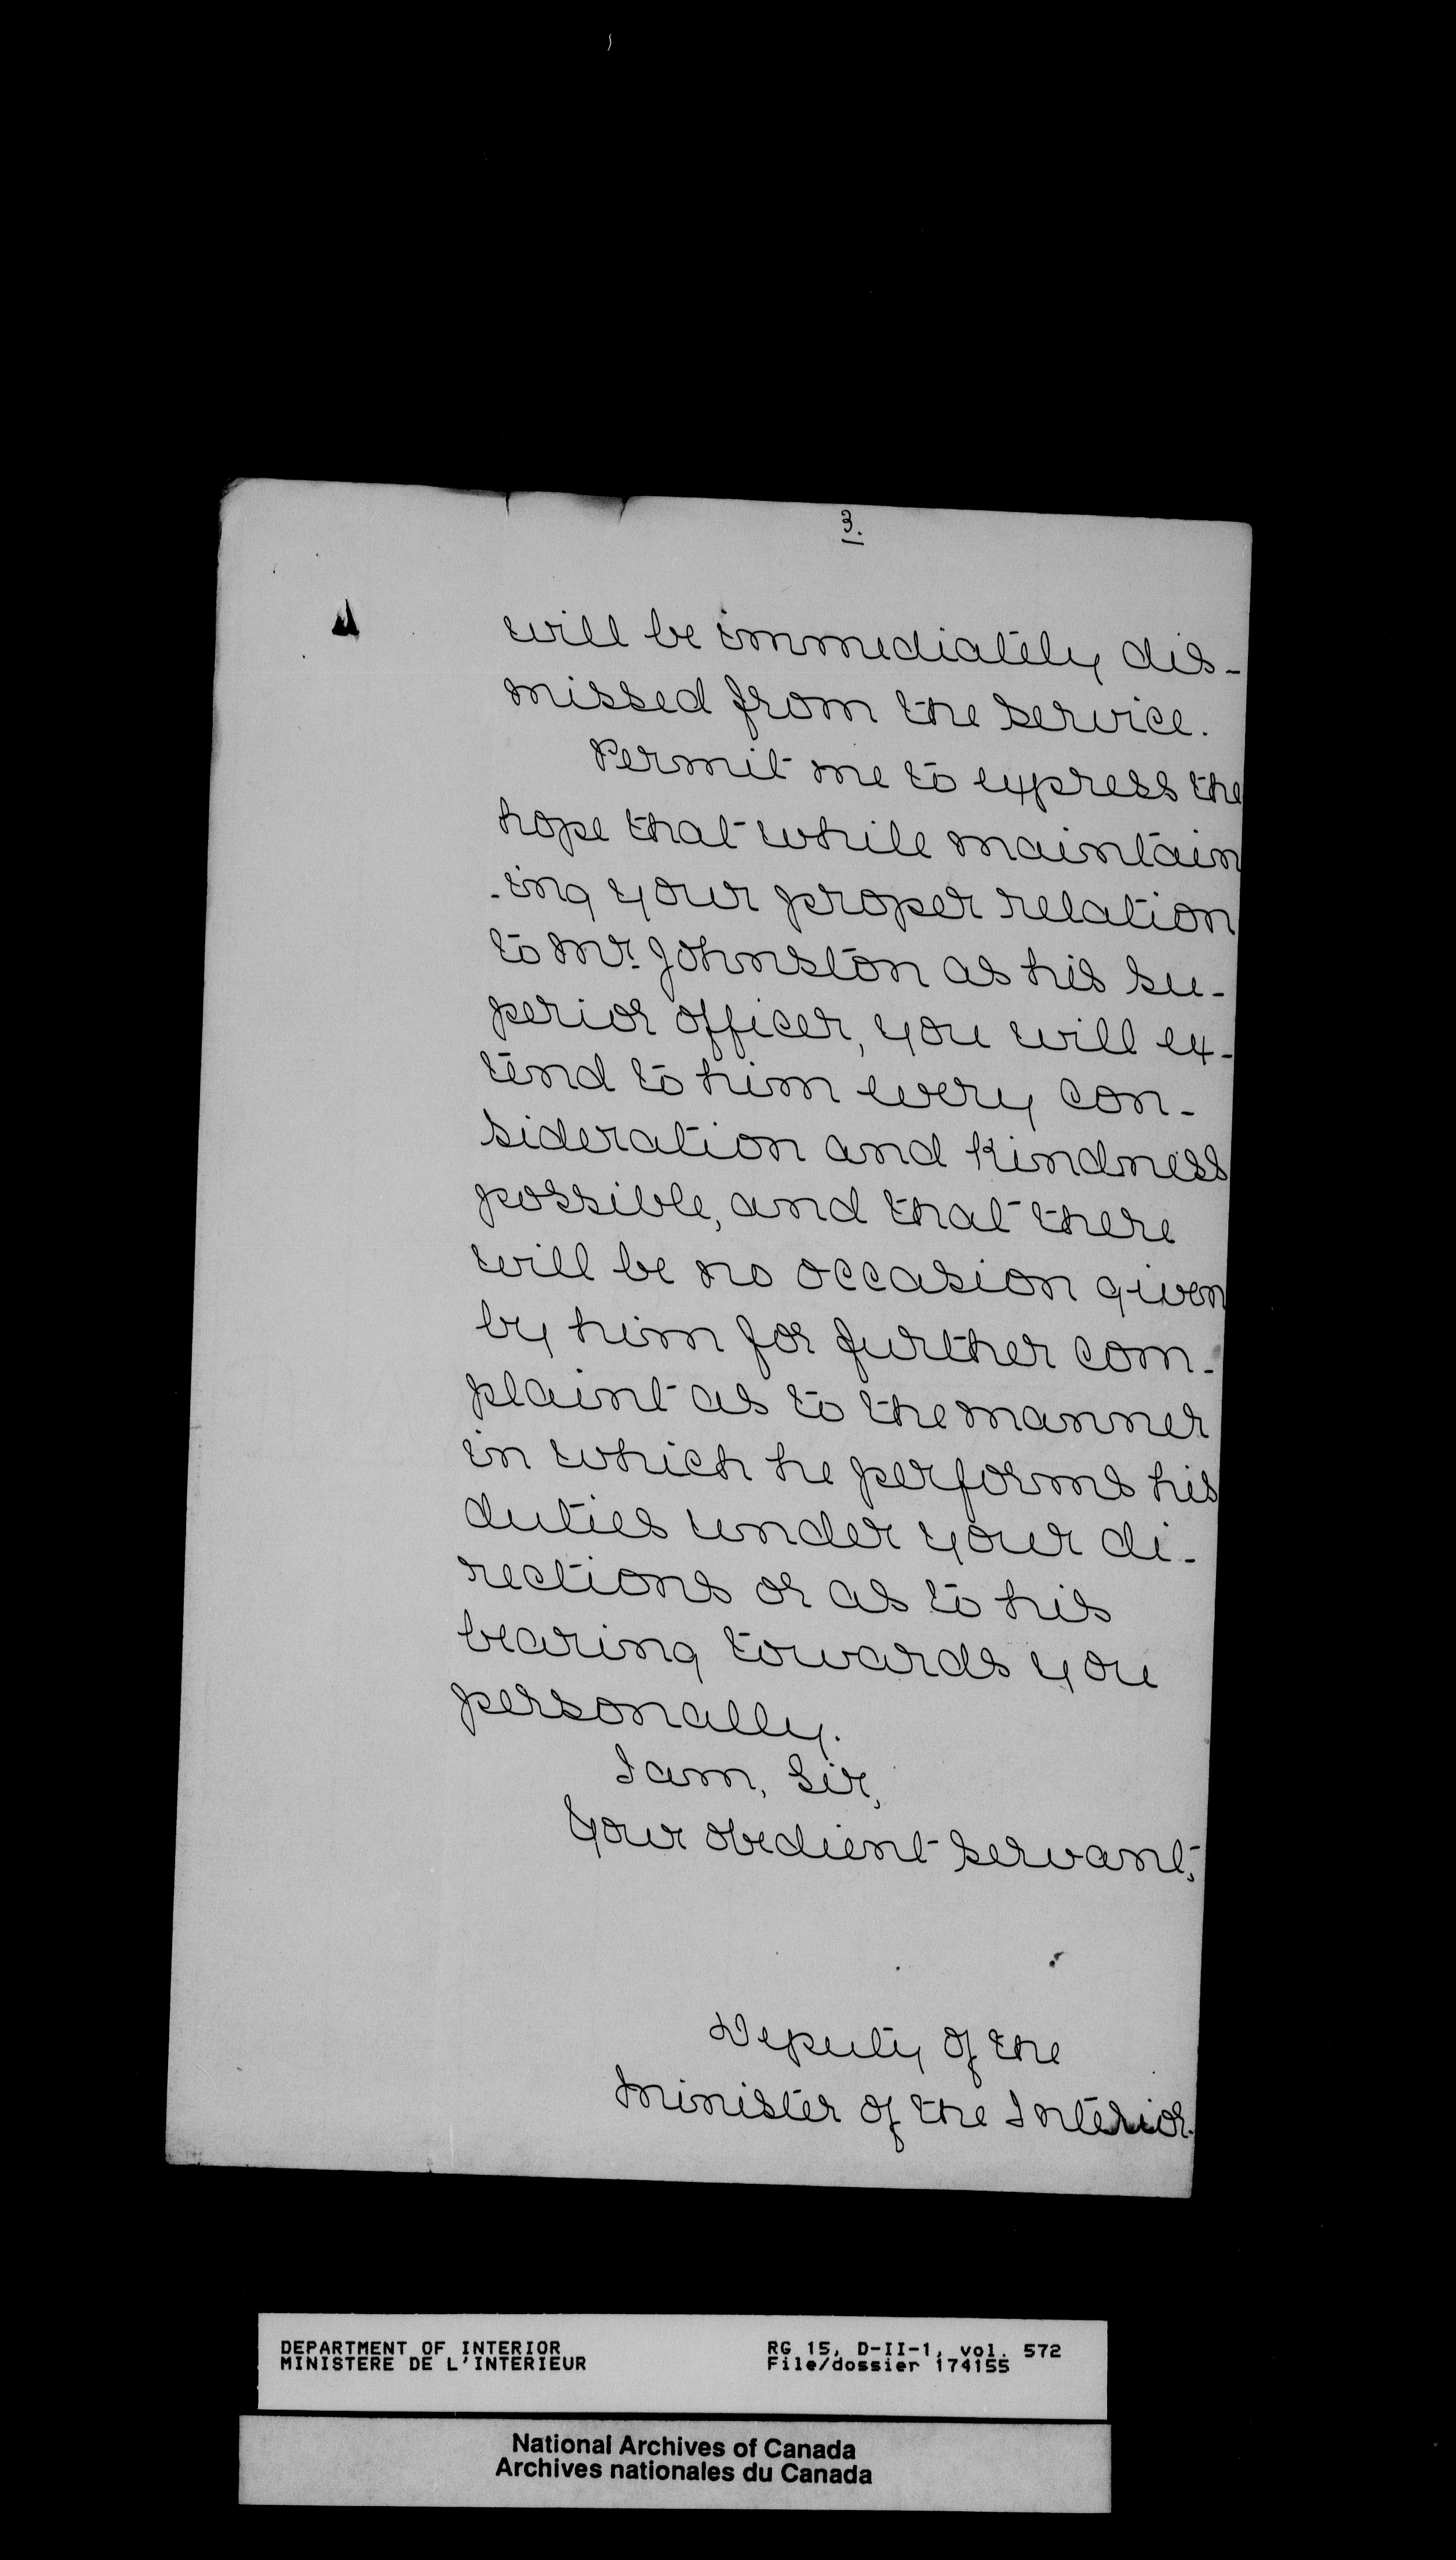 3.
will be immediately dis-
missed from the service.
Permit me to express the
hope that while maintain
-ing your proper relation
to Mr. Johnston as his su-
perior officer, you will ex-
tend to him every con-
sideration and kindness
possible, and that there
will be no occasion given
by him for further com-
plaint as to the manner
in which he performs his
duties under your di-
rections or as to his
bearing towards you
personally.
I am, Sir,
Your obedient servant,
Deputy of the
Minister of the Interior.
DEPARTMENT OF INTERIOR
MINISTERE DE L'INTERIEUR
RG 15, D-II-1, vol. 572
File/dossier 174155
National Archives of Canada
Archives nationales du Canada